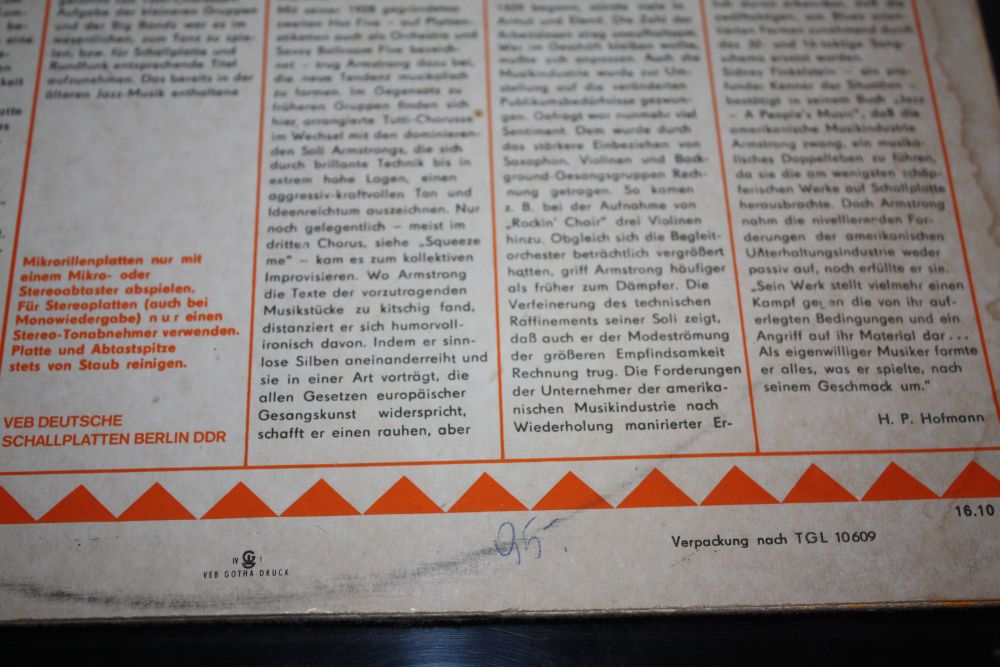 wesentlichen, zum Tanz zu spie-
len, bzw. für Schallplatte und
Rundfunk entsprechende Titel
aufzunehmen. Das bereits in der
älteren Jazz-Musik enthaltene
Mikrorillenplatten nur mit
einem Mikro- oder
Stereoabtaster abspielen.
Für Stereoplatten (auch bei
Monowiedergabe) n u r einen
Stereo-Tonabnehmer verwenden.
Platte und Abtastspitze
stets von Staub reinigen.
VEB DEUTSCHE
SCHALLPLATTEN BERLIN DDR
zweiten Hot Five – auf Platten-
etiketten auch als Orchestra und
Savoy Ballroom Five bezeich-
net – trug Armstrong dazu bei,
die neue Tendenz musikalisch
zu formen. Im Gegensatz zu
früheren Gruppen finden sich
hier arrangierte Tutti-Chorusse
im Wechsel mit den dominieren-
den Soli Armstrongs, die sich
durch brillante Technik bis in
extrem hohe Lagen, einen
aggressiv-kraftvollen Ton und
Ideenreichtum auszeichnen. Nur
noch gelegentlich – meist im
dritten Chorus, siehe „Squeeze
me" – kam es zum kollektiven
Improvisieren. Wo Armstrong
die Texte der vorzutragenden
Musikstücke zu kitschig fand,
distanziert er sich humorvoll-
ironisch davon. Indem er sinn-
lose Silben aneinanderreiht und
sie in einer Art vorträgt, die
allen Gesetzen europäischer
Gesangskunst widerspricht,
schafft er einen rauhen, aber
Armut und Elend. Die Zahl der
Arbeitslosen stieg unaufhaltsam.
Wer im Geschäft bleiben wollte,
mußte sich anpassen. Auch die
Musikindustrie wurde zur Um-
stellung auf die veränderten
Publikumsbedürfnisse gezwun-
gen. Gefragt war nunmehr viel
Sentiment. Dem wurde durch
das stärkere Einbeziehen von
Saxophon, Violinen und Back-
ground-Gesangsgruppen Rech-
nung getragen. So kamen
z. B. bei der Aufnahme von
„Rockin' Chair" drei Violinen
hinzu. Obgleich sich die Begleit-
orchester beträchtlich vergrößert
hatten, griff Armstrong häufiger
als früher zum Dämpfer. Die
Verfeinerung des technischen
Raffinements seiner Soli zeigt,
daß auch er der Modeströmung
der größeren Empfindsamkeit
Rechnung trug. Die Forderungen
der Unternehmer der amerika-
nischen Musikindustrie nach
Wiederholung manirierter Er-
terten Formen zunehmend durch
das 32- und 16-taktige Song-
schema ersetzt wurden.
Sidney Finkelstein – ein pro-
funder Kenner der Situation –
bestätigt in seinem Buch „Jazz
– A People's Music", daß die
amerikanische Musikindustrie
Armstrong zwang, ein musika-
lisches Doppelleben zu führen,
da sie die am wenigsten schöp-
ferischen Werke auf Schallplatte
herausbrachte. Doch Armstrong
nahm die nivellierenden For-
derungen der amerikanischen
Unterhaltungsindustrie weder
passiv auf, noch erfüllte er sie.
„Sein Werk stellt vielmehr einen
Kampf gegen die von ihr auf-
erlegten Bedingungen und ein
Angriff auf ihr Material dar ...
Als eigenwilliger Musiker formte
er alles, was er spielte, nach
seinem Geschmack um."
H. P. Hofmann
16.10
Verpackung nach TGL 10609
95
VEB GOTHA-DRUCK